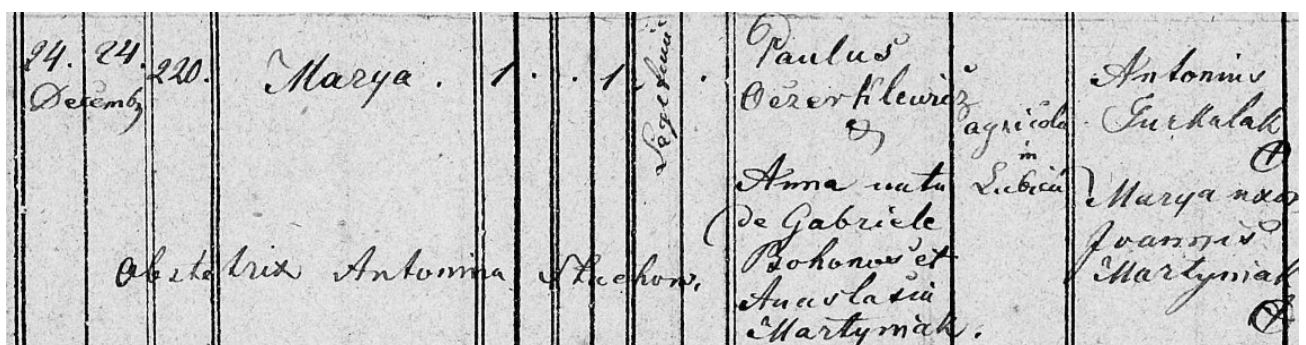 24. 24.
Decemb
220.
Marya.
1 . . 1 .
Legitimi
Paulus
Oczerklewicz
&
Anna nata
de Gabriele
Bohonos et
Anastasia
Martyniak.
agricola
in
Antonius
Turkalak
Marya uxor
Joannis
Martyniak
Obstetrix Antonina Stachow.